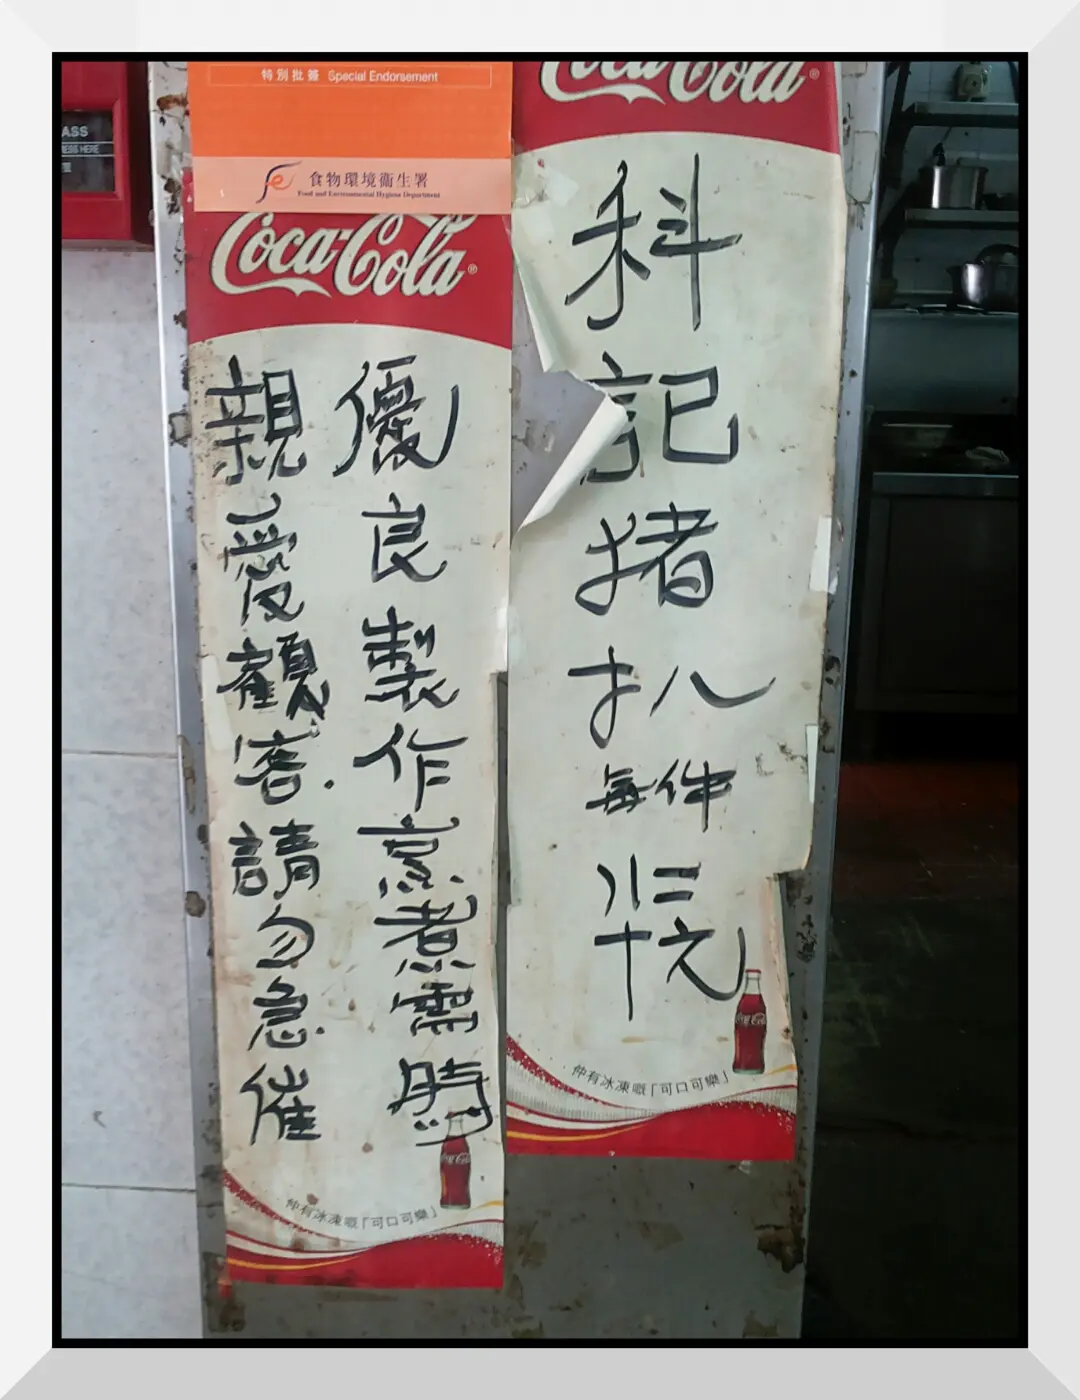 特別批簽 Special Endorsement
食物環境衞生署
Food and Environmental Hygiene Department
ASS
ESS HERE
Coca-Cola
科記猪扒每件
十元
仲有冰凍嘅「可口可樂」
Coca-Cola
優良製作烹煮需時
親愛顧客.請勿急催
仲有冰凍嘅「可口可樂」